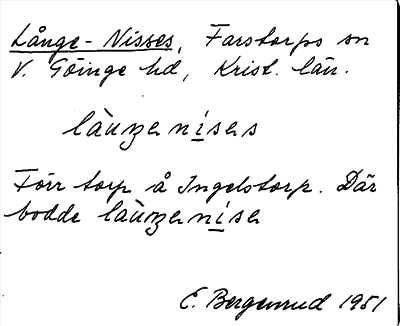 Långe-Nisses, Farstorps sn
V. Göinge hd, Krist. län.
làuŋenisas
Förr torp å Ingelstorp. Där
bodde làuŋenisa
E. Bergenrud 1951